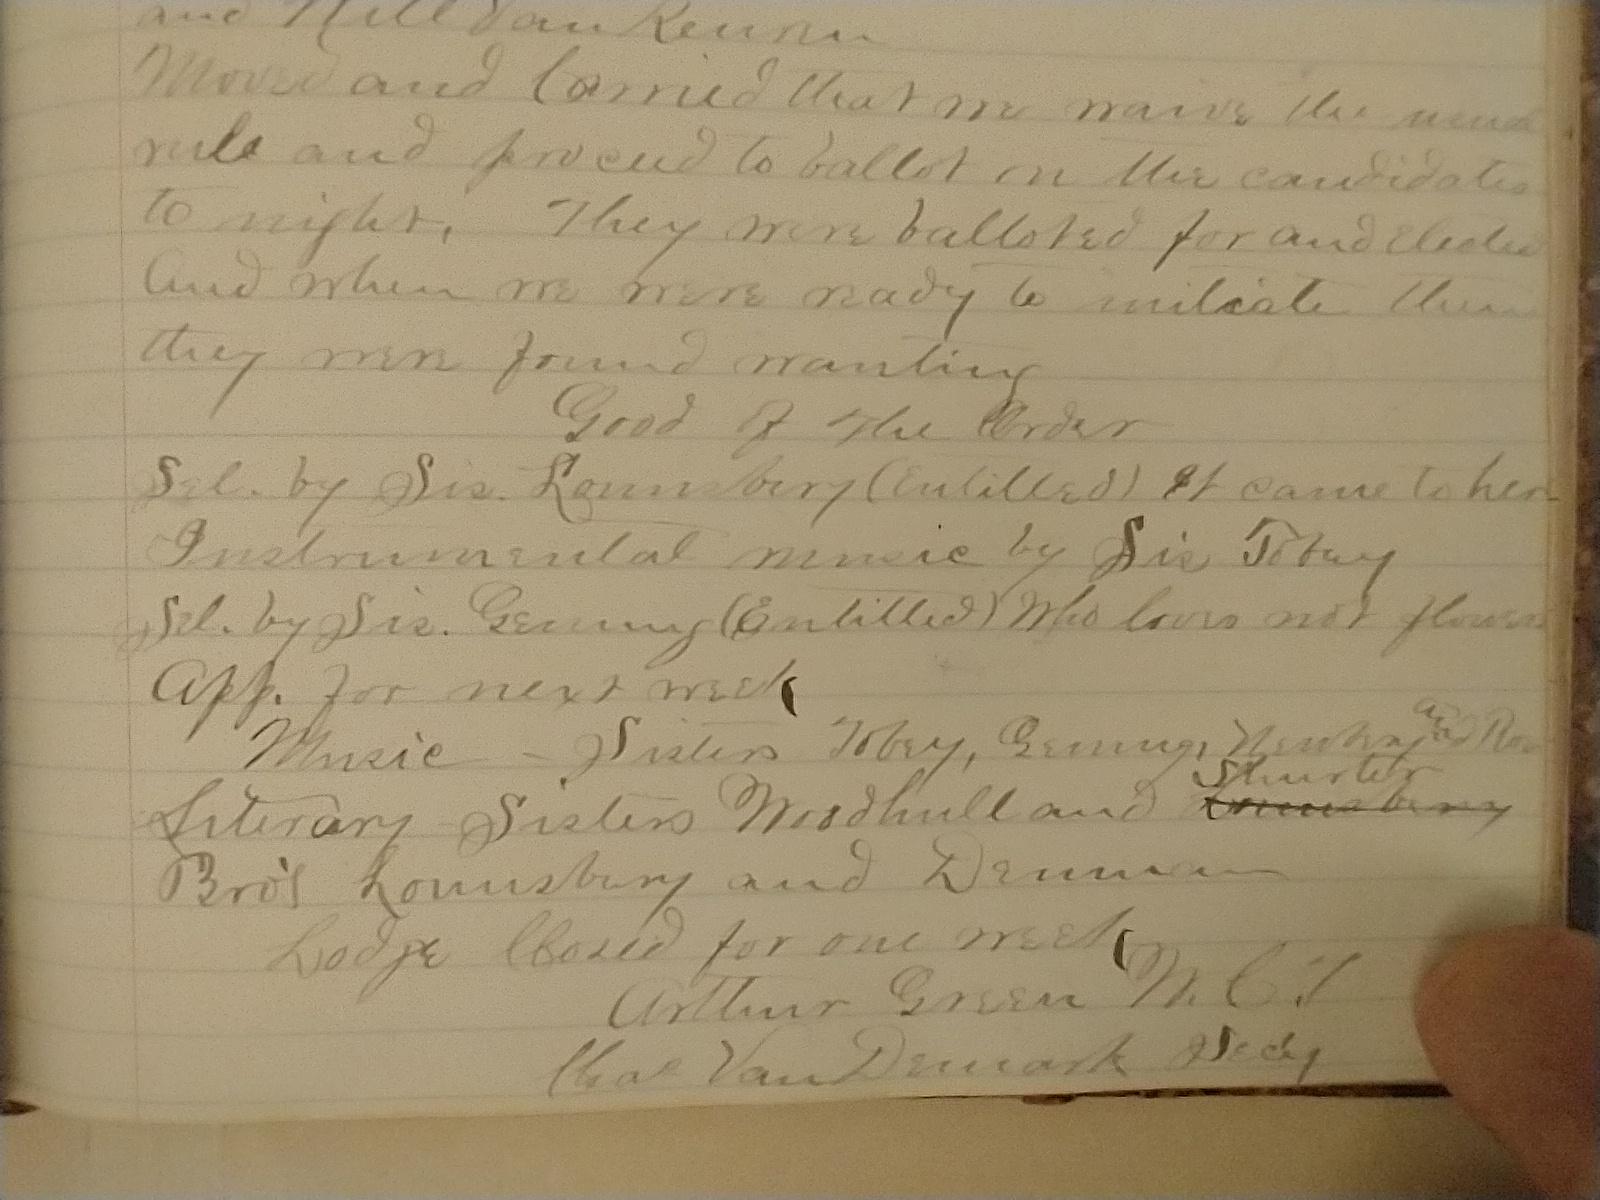 and Nell Van Keuren
Moved and Carried that we waive the usual
rule and proceed to ballot on the candidates
to night. They were balloted for and Elected
And when we were ready to initiate them
they were found wanting
Good of the Order
Sel. by Sis. Lounsbery (Entitled) It came to her
Instrumental music by Sis Tobey
Sel. by Sis. Gemmg (Entitled) Who loves not flowers
App. for next week
Music - Sisters Tobey, Gemmg, and
Shurter
Literary Sisters Woodhull and Lounsbery
Bro's Lounsbury and Denman
Lodge Closed for one week
Arthur Green W.C.T
Chas Van Demark Secy